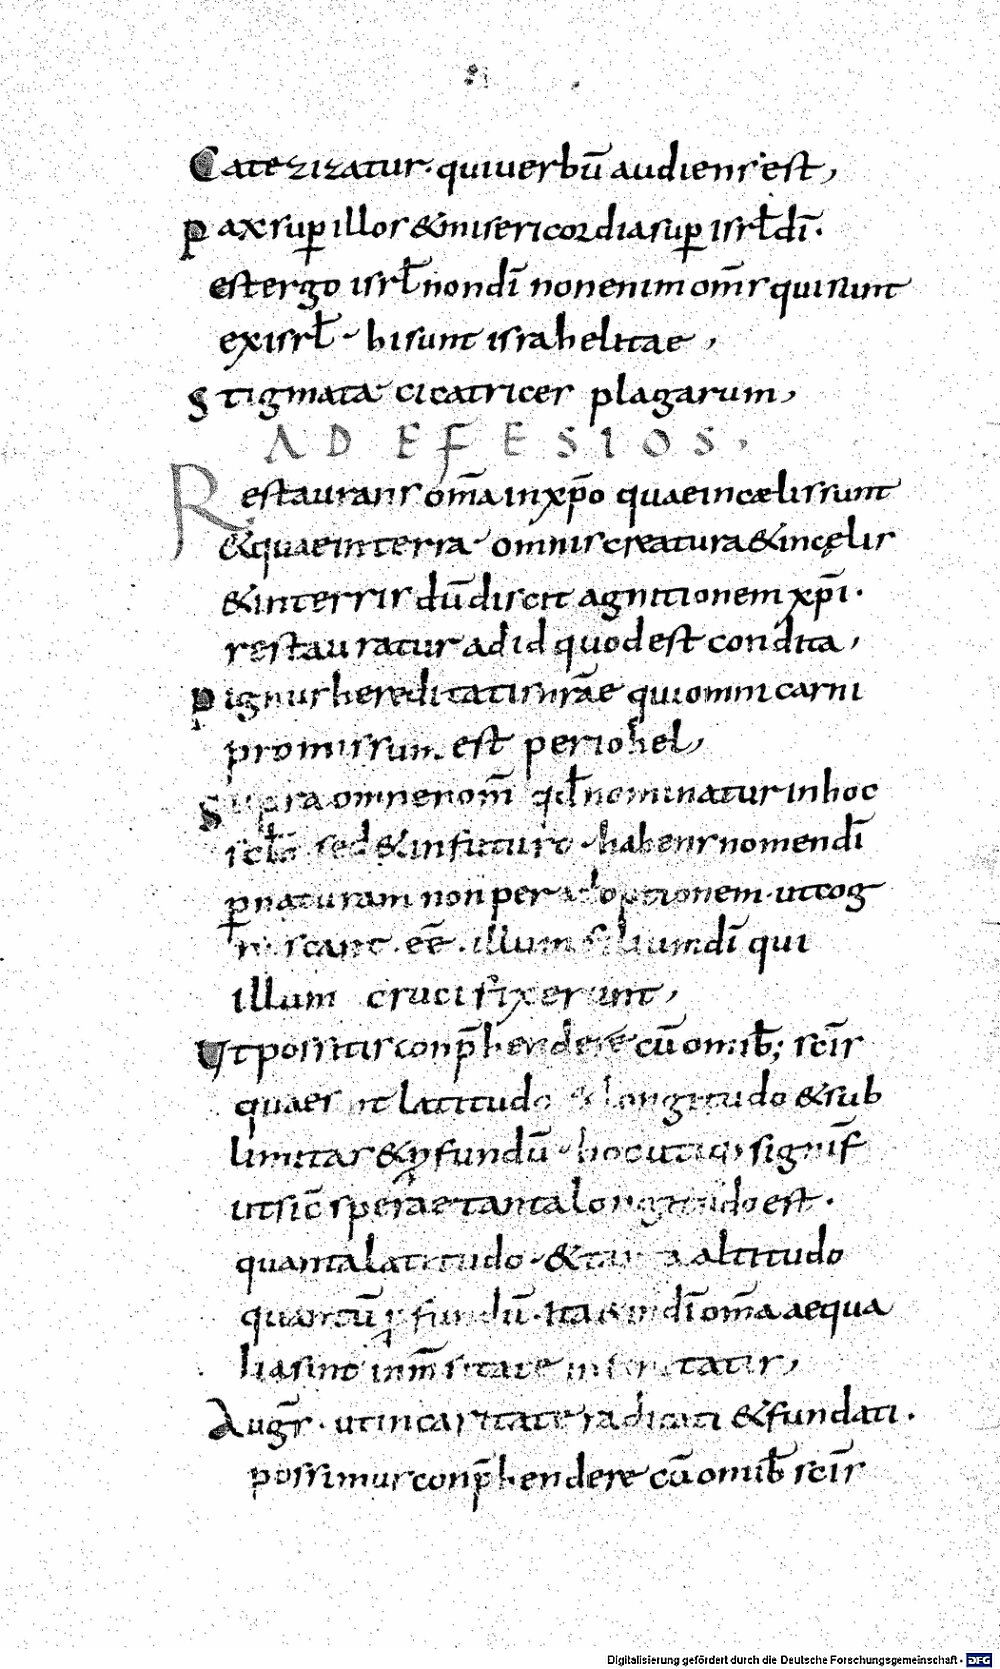 Catezizatur· qui uerbū audiens est,
Pax sup illos & misericordia sup isrł dī·
est ergo isrł non dī non enim om̄s qui sunt
ex isrł· hi sunt israhelitae,
Stigmata cicatrices plagarum,
AD EFESIOS,
Restaurans om̄a in xp̄o quae in cælis sunt
& quae in terra· omnis creatura & in cęlis
& in terris dū discit agnitionem xp̄i·
restauratur ad id quod est condita,
Pignus hereditatis nr̄ae qui omni carni
promissum est per iohel,
Supra omne nom̄ qd̄ nominatur in hoc
scłō sed & in futuro· habens nomen dī
p naturam non per adoptionem· ut cog
niscant· eē· illum filium dī qui
illum crucifixerunt,
Ut possitis conp̄hendere cū omib; sc̄is
quae sit latitudo & longitudo & sub
limitas & pfundū· hoc utiq; signif̄
ut sic̄ sperae tanta longitudo est·
quanta latitudo· & tanta altitudo
quantū pfundū· Ita & in dī om̄a aequa
lia sint in̄m̄sitate infinitatis,
Augs̄· ut in caritate radicati & fundati·
possimus conp̄hendere cū omib sc̄is
Digitalisierung gefördert durch die Deutsche Forschungsgemeinschaft - DFG